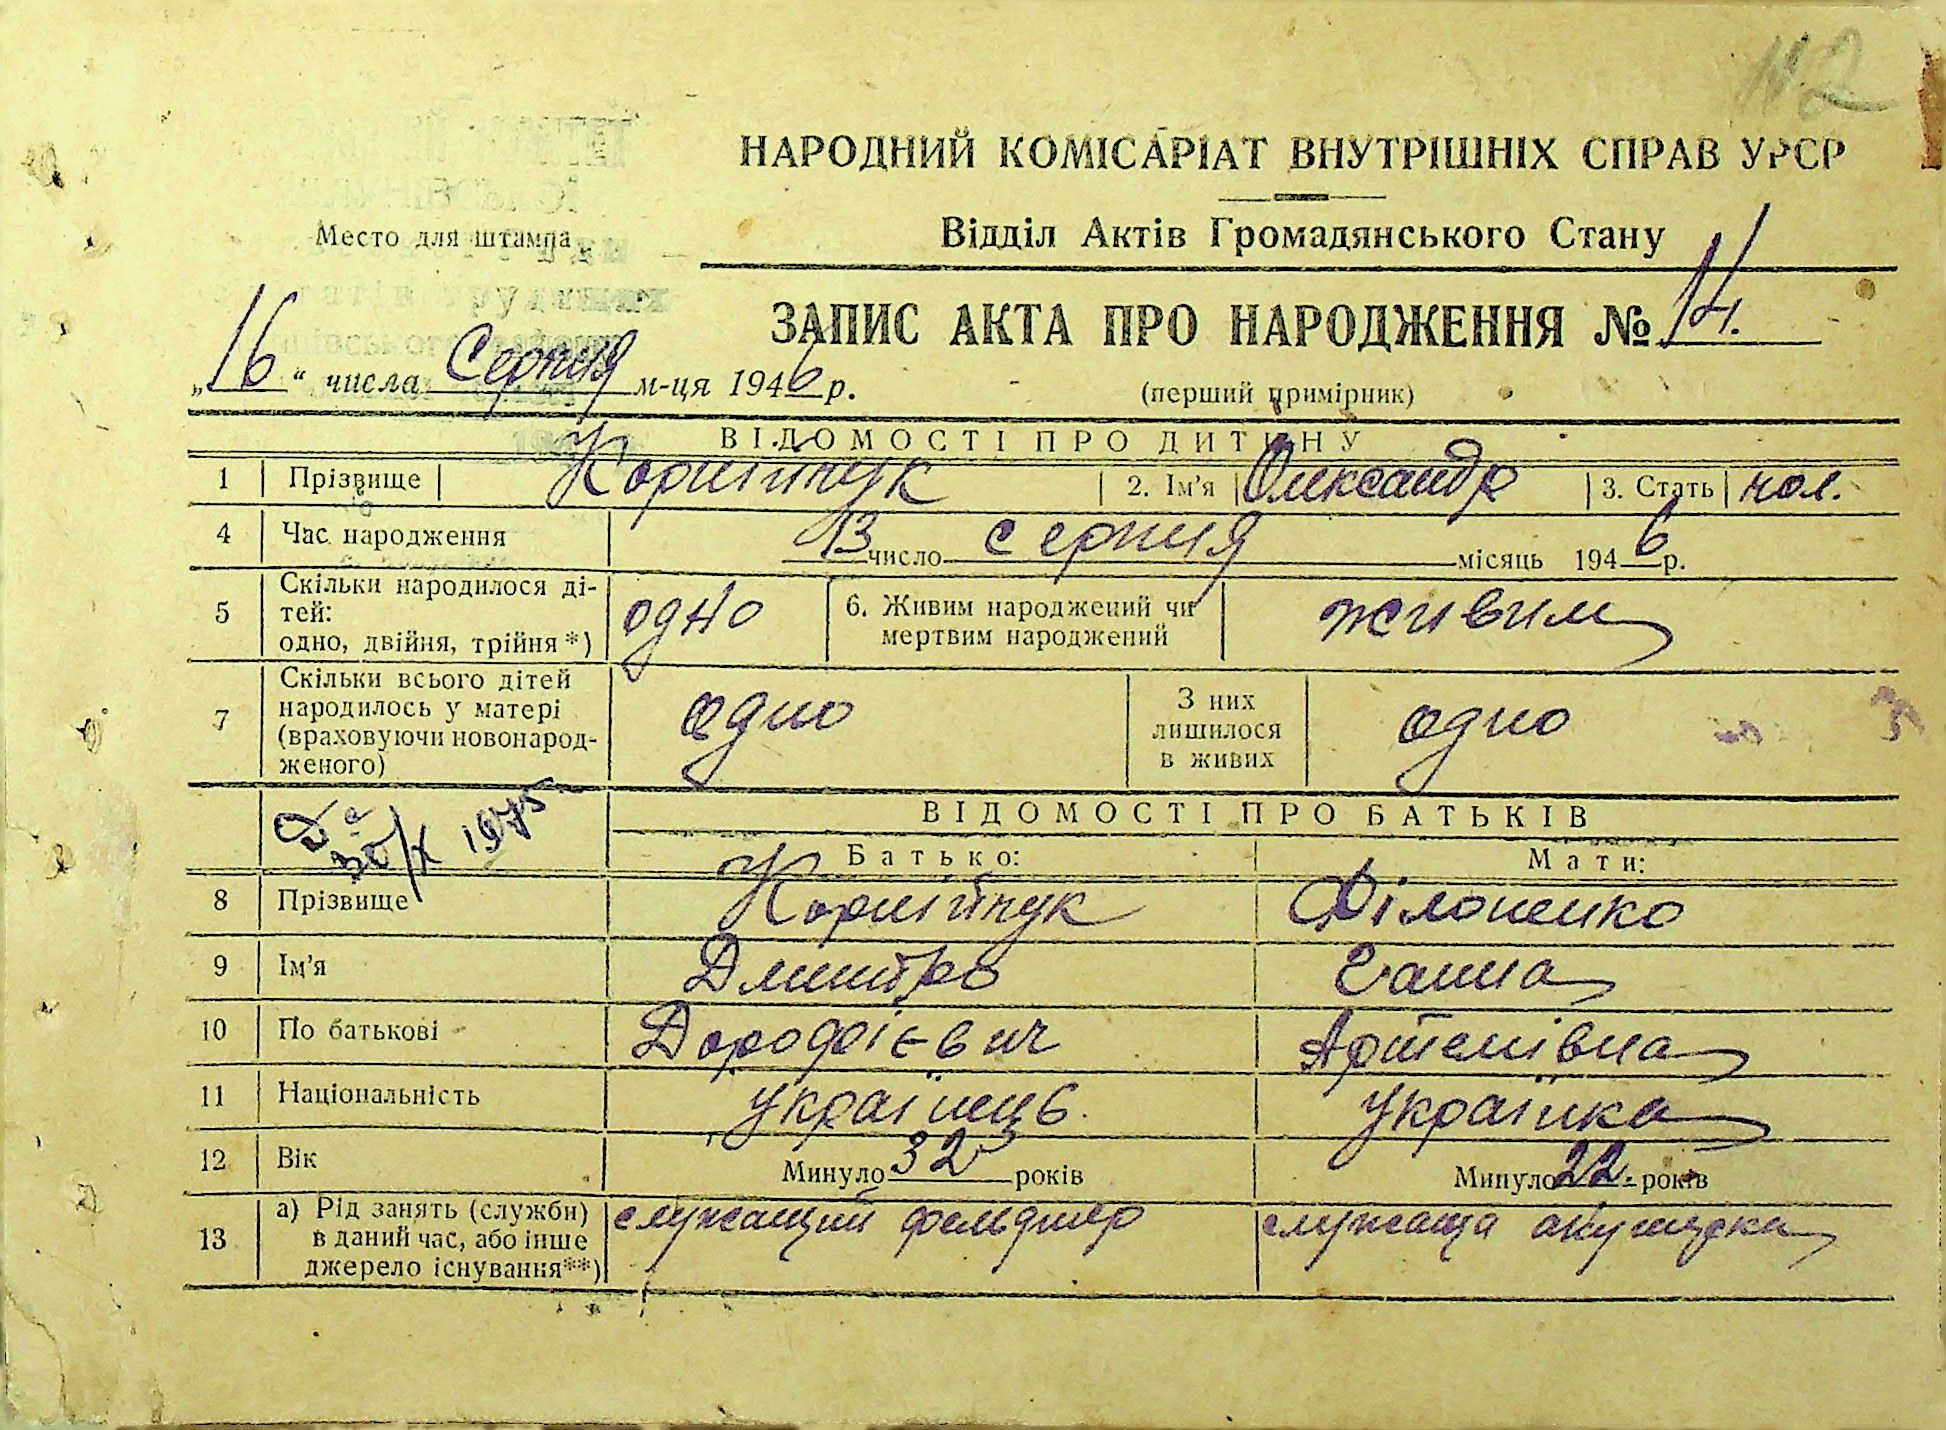 НАРОДНИЙ КОМІСАРІАТ ВНУТРІШНІХ СПРАВ УРСР
Место для штампа
Відділ Актів Громадянського Стану
ЗАПИС АКТА ПРО НАРОДЖЕННЯ № 14.
„16“ числа Серпня м-ця 1946 р.
(перший примірник)
ВІДОМОСТІ ПРО ДИТИНУ
1 Прізвище Корнійчук 2. Ім'я Олександр 3. Стать чол.
4 Час народження 13 число серпня місяць 1946 р.
5 Скільки народилося ді-
тей:
одно, двійня, трійня *) одно
6. Живим народжений чи
мертвим народжений живим
7 Скільки всього дітей
народилось у матері
(враховуючи новонарод-
женого) одно
З них
лишилося
в живих одно
30/X 1975
ВІДОМОСТІ ПРО БАТЬКІВ
Батько: Мати:
8 Прізвище Корнійчук Філоненко
9 Ім'я Дмитро Ганна
10 По батькові Дорофієвич Артемівна
11 Національність Українець Українка
12 Вік Минуло 32 років Минуло 22. років
13 а) Рід занять (служби)
в даний час, або інше
джерело існування**) служащий фельдшер служаща акушерка